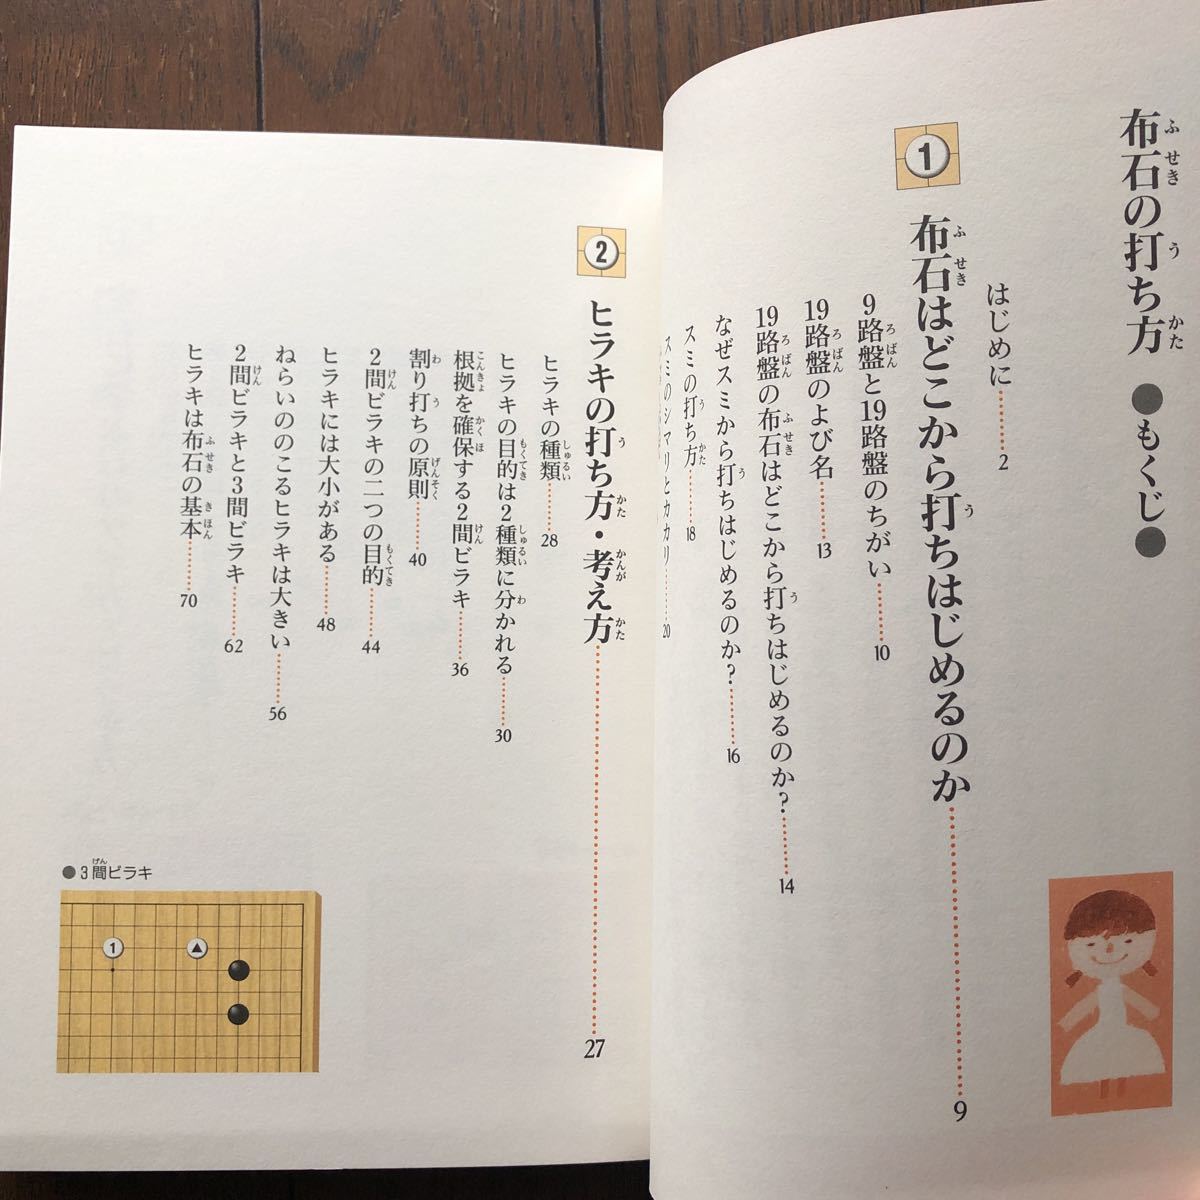 布石の打ち方 ●もくじ●
はじめに……2
1 布石はどこから打ちはじめるのか……9
9路盤と19路盤のちがい……10
19路盤のよび名……13
19路盤の布石はどこから打ちはじめるのか?……14
なぜスミから打ちはじめるのか?……16
スミの打ち方……18
スミのシマリとカカリ……20
2 ヒラキの打ち方・考え方……27
ヒラキの種類……28
ヒラキの目的は2種類に分かれる……30
根拠を確保する2間ビラキ……36
割り打ちの原則……40
2間ビラキの二つの目的……44
ヒラキには大小がある……48
ねらいののこるヒラキは大きい……56
2間ビラキと3間ビラキ……62
ヒラキは布石の基本……70
●3間ビラキ
1